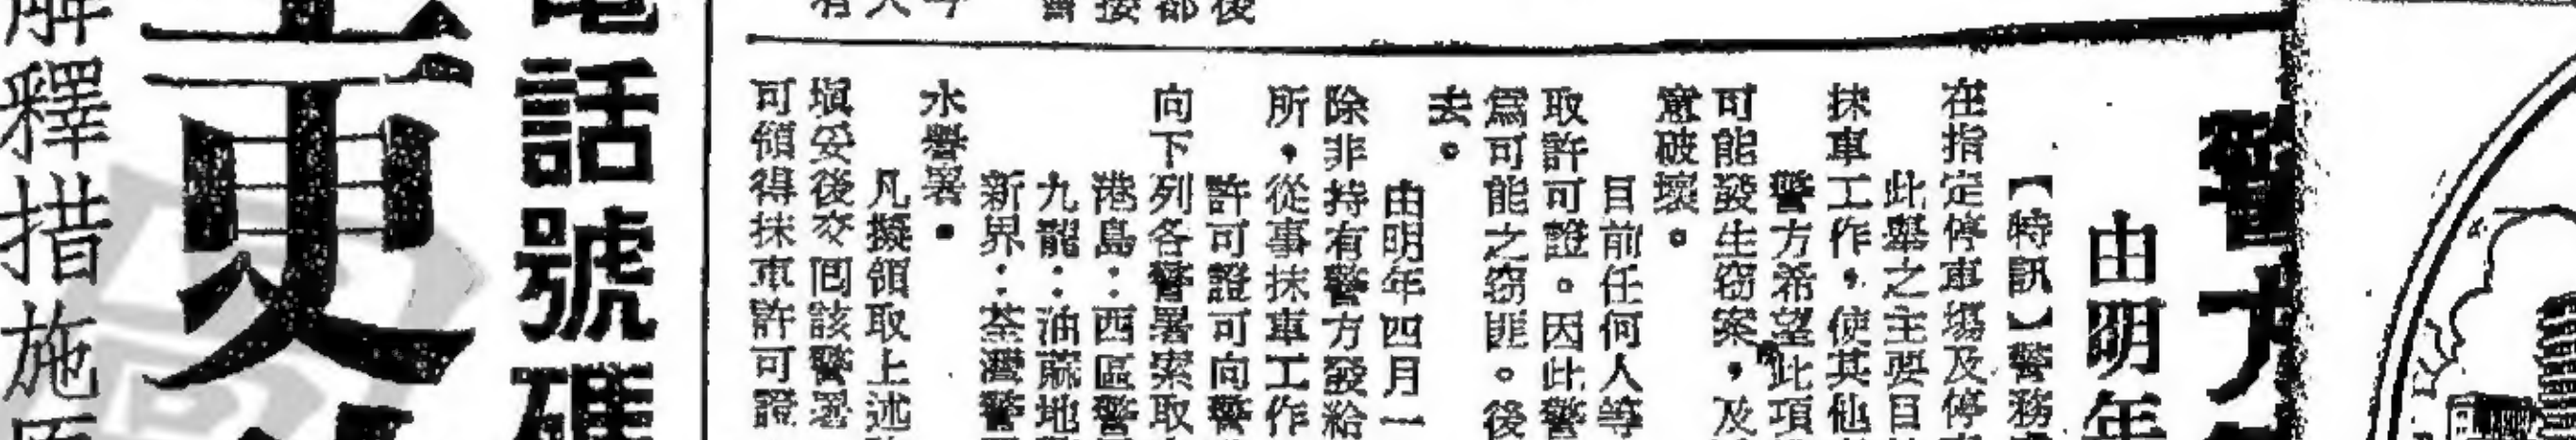 警方
由明年
【特訊】警務
在指定停車塲及停車
此舉之主要目
抹車工作，使其他
警方希望此項
可能發生窃案，及
意破壞。
目前任何人等
取許可證。因此警
為可能之窃匪。後
去。
由明年四月一
除非持有警方發給
所，從事抹車工作
許可證可向警
向下列各警署索取
港島：西區警
九龍：油蔴地
新界：荃灣警
水警署。
凡擬領取上述
塡妥後交囘該警署
可領得抹車許可證
後
都
接
電話號碼
更
解釋措施